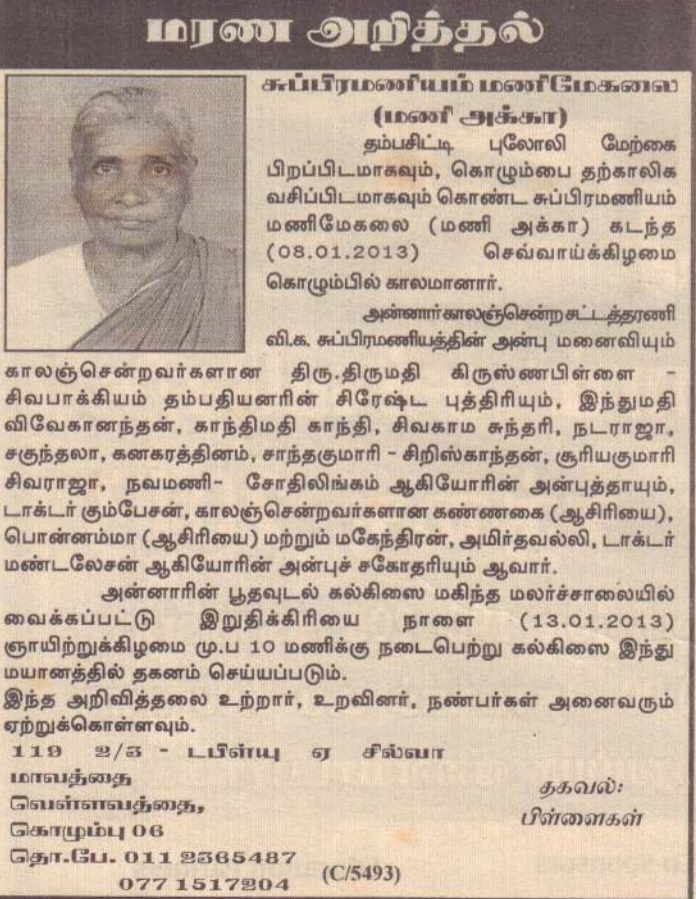 மரண அறித்தல்
சுப்பிரமணியம் மணிமேகலை
(மணி அக்கா)
தம்பசிட்டி புலோலி மேற்கை
பிறப்பிடமாகவும், கொழும்பை தற்காலிக
வசிப்பிடமாகவும் கொண்ட சுப்பிரமணியம்
மணிமேகலை (மணி அக்கா) கடந்த
(08.01.2013) செவ்வாய்க்கிழமை
கொழும்பில் காலமானார்.
அன்னார் காலஞ்சென்ற சட்டத்தரணி
வி.க. சுப்பிரமணியத்தின் அன்பு மனைவியும்
காலஞ்சென்றவர்களான திரு.திருமதி கிருஸ்ணபிள்ளை -
சிவபாக்கியம் தம்பதியனரின் சிரேஷ்ட புத்திரியும், இந்துமதி
விவேகானந்தன், காந்திமதி காந்தி, சிவகாம சுந்தரி, நடராஜா,
சகுந்தலா, கனகரத்தினம், சாந்தகுமாரி - சிறிஸ்காந்தன், சூரியகுமாரி
சிவராஜா, நவமணி- சோதிலிங்கம் ஆகியோரின் அன்புத்தாயும்,
டாக்டர் கும்பேசன், காலஞ்சென்றவர்களான கண்ணகை (ஆசிரியை),
பொன்னம்மா (ஆசிரியை) மற்றும் மகேந்திரன், அமிர்தவல்லி, டாக்டர்
மண்டலேசன் ஆகியோரின் அன்புச் சகோதரியும் ஆவார்.
அன்னாரின் பூதவுடல் கல்கிஸை மகிந்த மலர்ச்சாலையில்
வைக்கப்பட்டு இறுதிக்கிரியை நாளை (13.01.2013)
ஞாயிற்றுக்கிழமை மு.ப 10 மணிக்கு நடைபெற்று கல்கிஸை இந்து
மயானத்தில் தகனம் செய்யப்படும்.
இந்த அறிவித்தலை உற்றார், உறவினர், நண்பர்கள் அனைவரும்
ஏற்றுக்கொள்ளவும்.
119 2/3 - டபிள்யு ஏ சில்வா
மாவத்தை
வெள்ளவத்தை,
கொழும்பு 06
தொ.பே. 011 2365487
077 1517204
தகவல்:
பிள்ளைகள்
(C/5493)